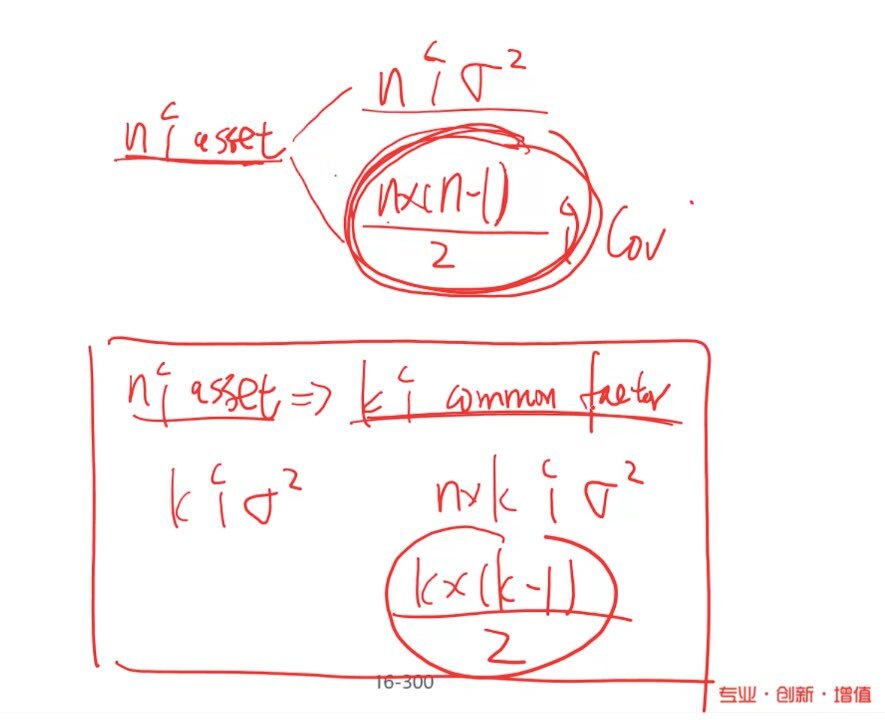 n个σ²
n个asset
n×(n-1)
2
个
Cov
n个asset => k个 common factor
k个σ²
n×k个σ²
k×(k-1)
2
16-300
专业·创新·增值